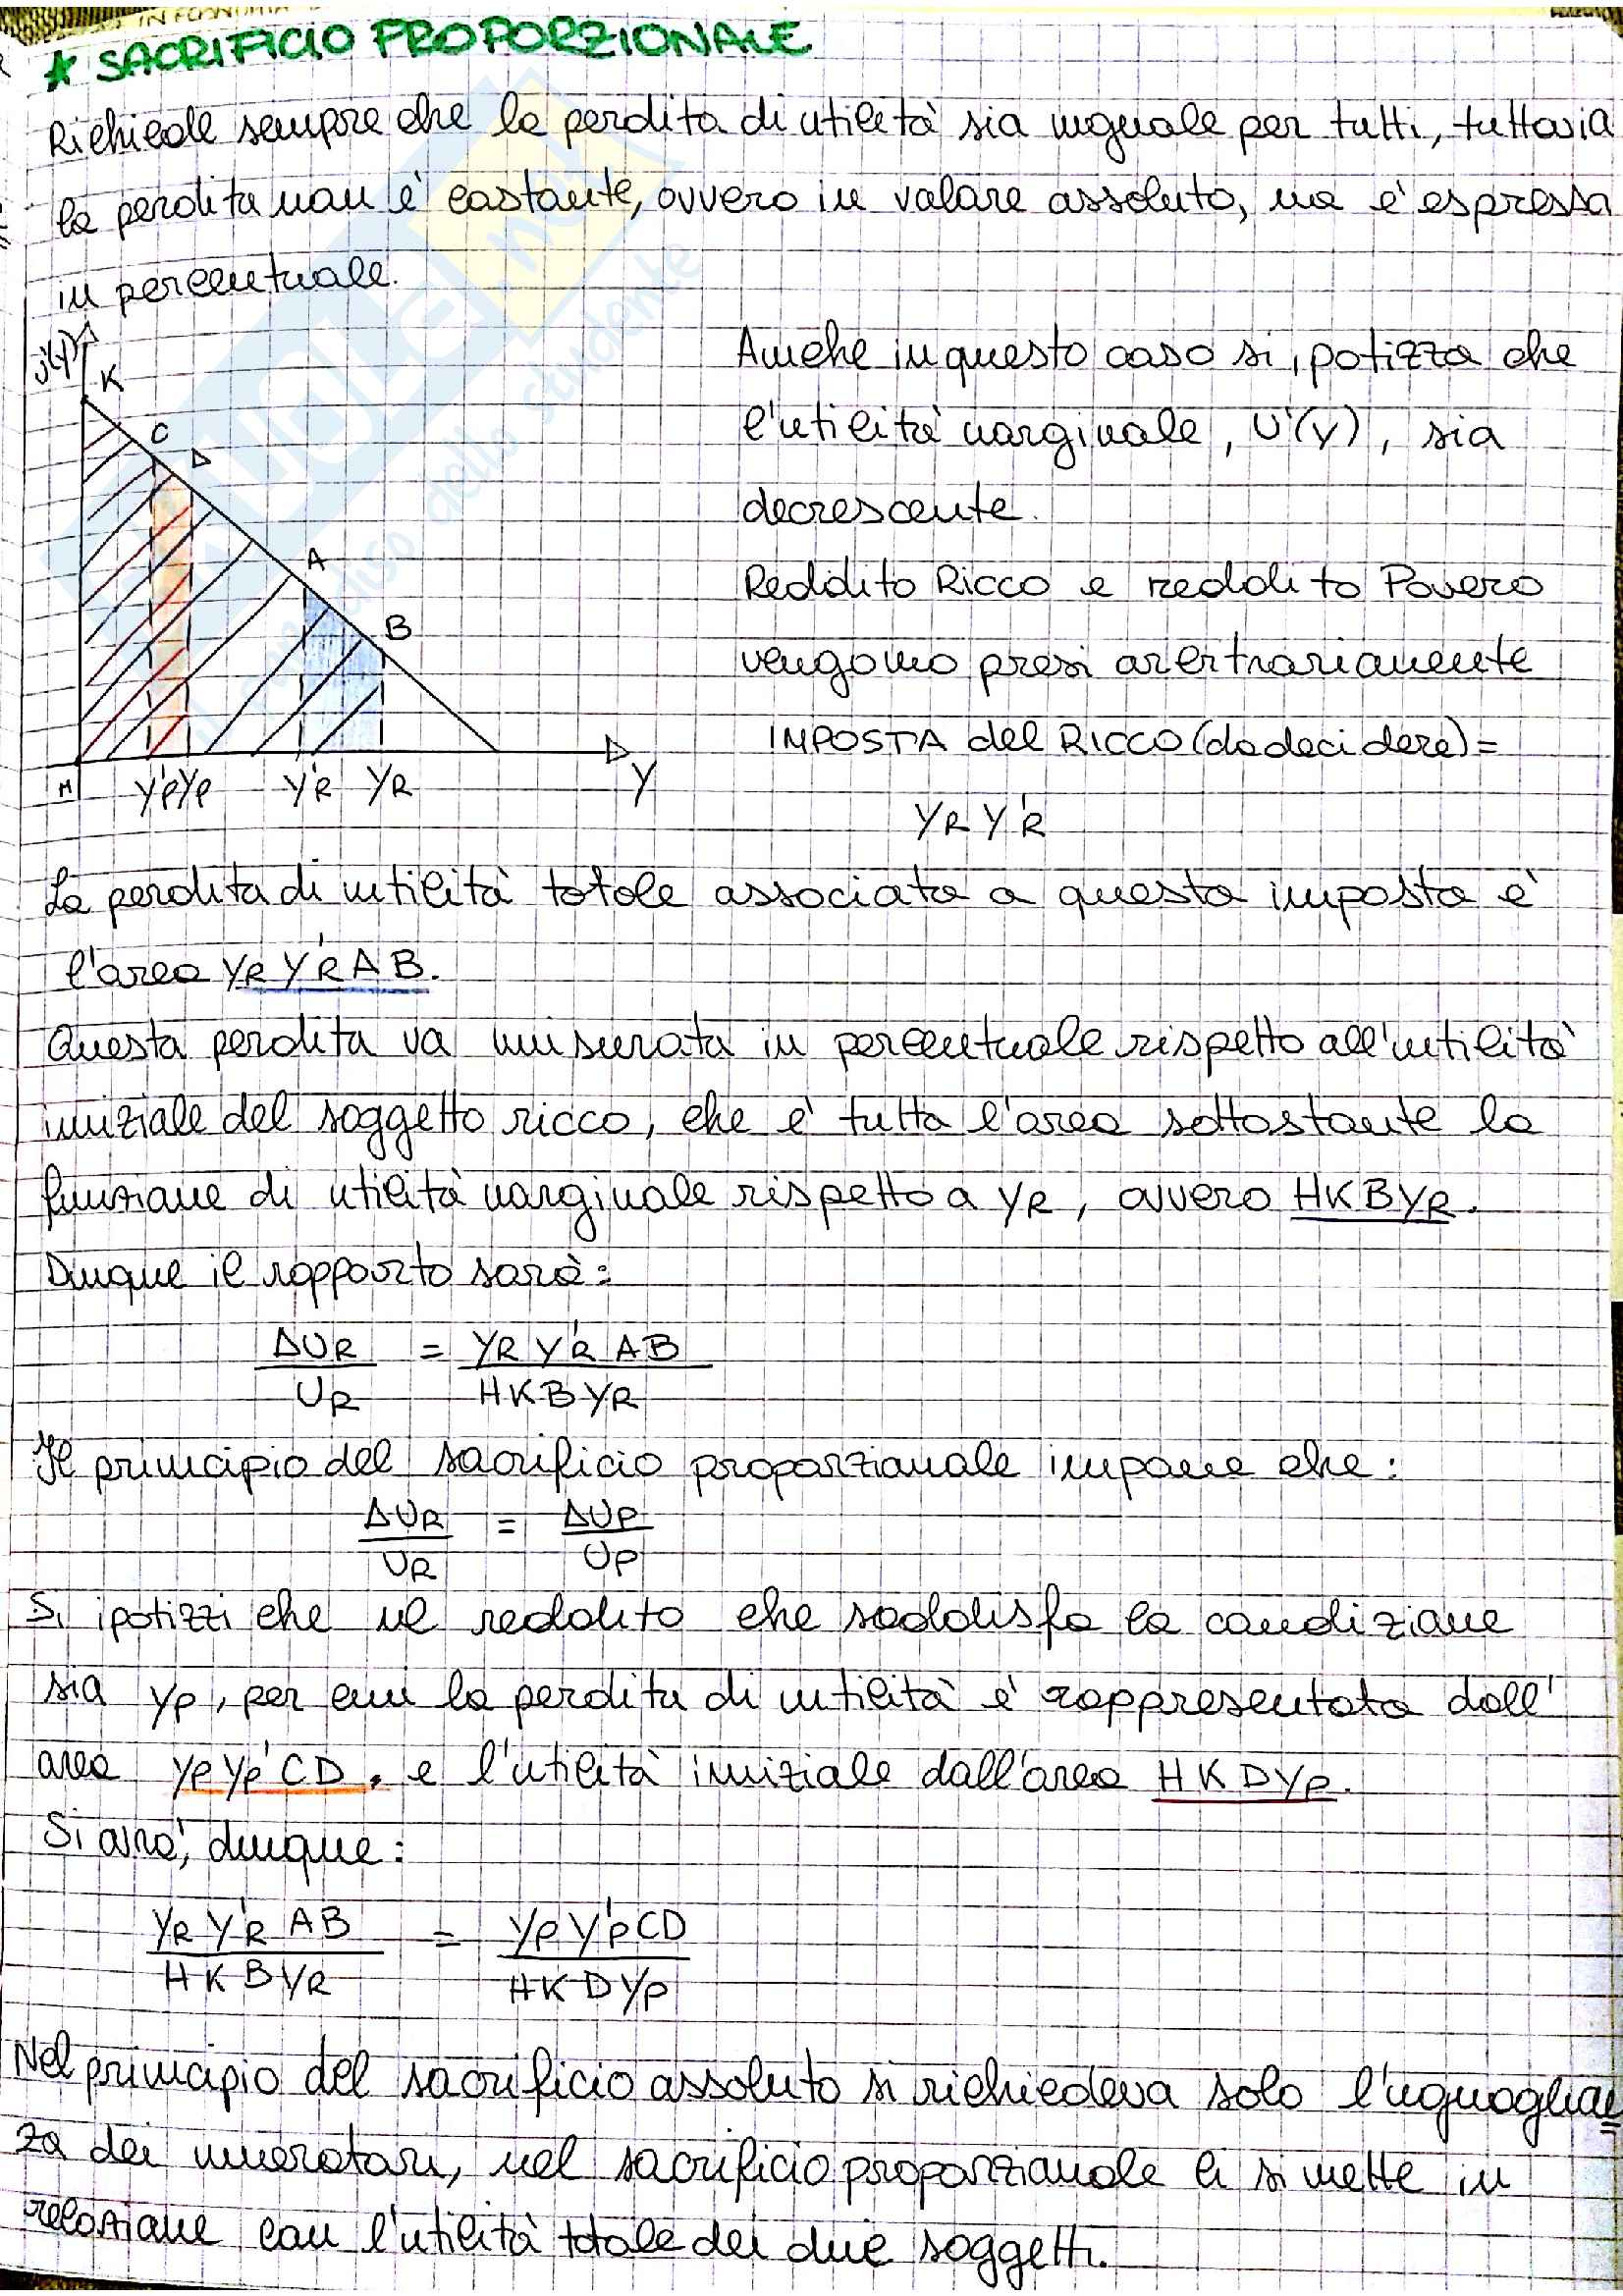 IN ECONOMIA
★ SACRIFICIO PROPORZIONALE
Richiede sempre che la perdita di utilità sia uguale per tutti, tuttavia
la perdita non è costante, ovvero in valore assoluto, ma è espressa
in percentuale.
U'(Y)
K
C
D
A
B
H
Y'P YP
Y'R YR
Y
Anche in questo caso si ipotizza che
l'utilità marginale, U'(Y), sia
decrescente.
Reddito Ricco e reddito Povero
vengono presi arbitrariamente
IMPOSTA del RICCO (da decidere) =
YR Y'R
La perdita di utilità totale associata a questa imposta è
l'area YR Y'R A B.
Questa perdita va misurata in percentuale rispetto all'utilità
iniziale del soggetto ricco, che è tutta l'area sottostante la
funzione di utilità marginale rispetto a YR, ovvero HKBYR.
Dunque il rapporto sarà:
ΔUR = YR Y'R AB
UR HKBYR
Il principio del sacrificio proporzionale impone che:
ΔUR = ΔUP
UR UP
Si ipotizzi che il reddito che soddisfa la condizione
sia YP, per cui la perdita di utilità è rappresentata dall'
area YP YP' CD, e l'utilità iniziale dall'area HKDYP.
Si avrà, dunque:
YR Y'R AB = YP Y'P CD
HKBYR HKDYP
Nel principio del sacrificio assoluto si richiedeva solo l'uguaglian
za dei numeratori, nel sacrificio proporzionale li si mette in
relazione con l'utilità totale dei due soggetti.